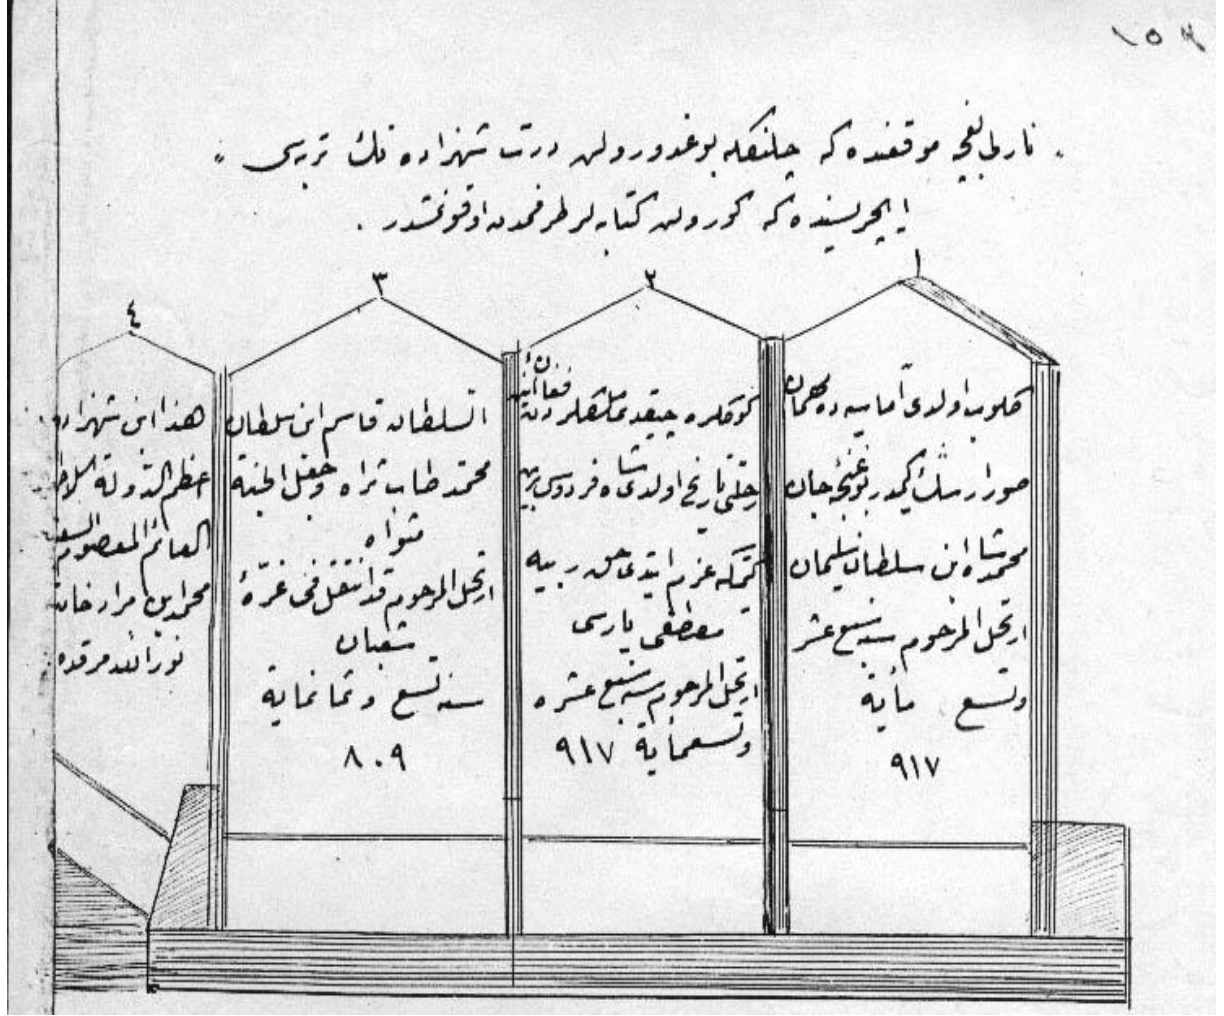 ١٥٩
نارلی باغچه موقعنده که چلنكله بوغدورولن درت شهزاده نك تربه سی
ایچریسنده که کورولن کتابه لر طرفمدن اوقونمشدر .
١
كلوب اولدی آماسیه ده مهمان
صورارسڭ كیمدر بو غنچه جان
محمد شاه ابن سلطان سلیمان
ارتحل المرحوم سنه سبع عشر
وتسع مأیة
٩١٧
٢
كوكلره چیقدی ملكلردن فغان
رحلتی تاریخ اولدی شاه فردوسی
كیمكه عزم ایتدی حق ربیه
مصطفی پارسی
ارتحل المرحوم سنه سبع عشره
وتسعمایة ٩١٧
٣
السلطان قاسم ابن سلطان
محمد طاب ثراه وجعل الجنة
مثواه
ارتحل المرحوم قد انتقل فی غرّۀ
شعبان
سنه تسع وثمانمایة
٨٠٩
٤
هذا ابن شهزاده
اعظم الدولة
العائم المعصوم السعید
محمد ابن مراد خان
نور الله مرقده